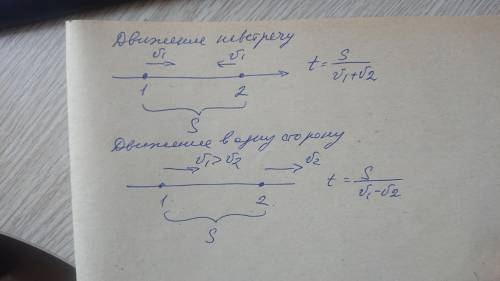 Движение навстречу
v1 v1
t = S / v1+v2
1 2
S
Движение в одну сторону
v1 > v2 v2
t = S / v1-v2
1 2
S